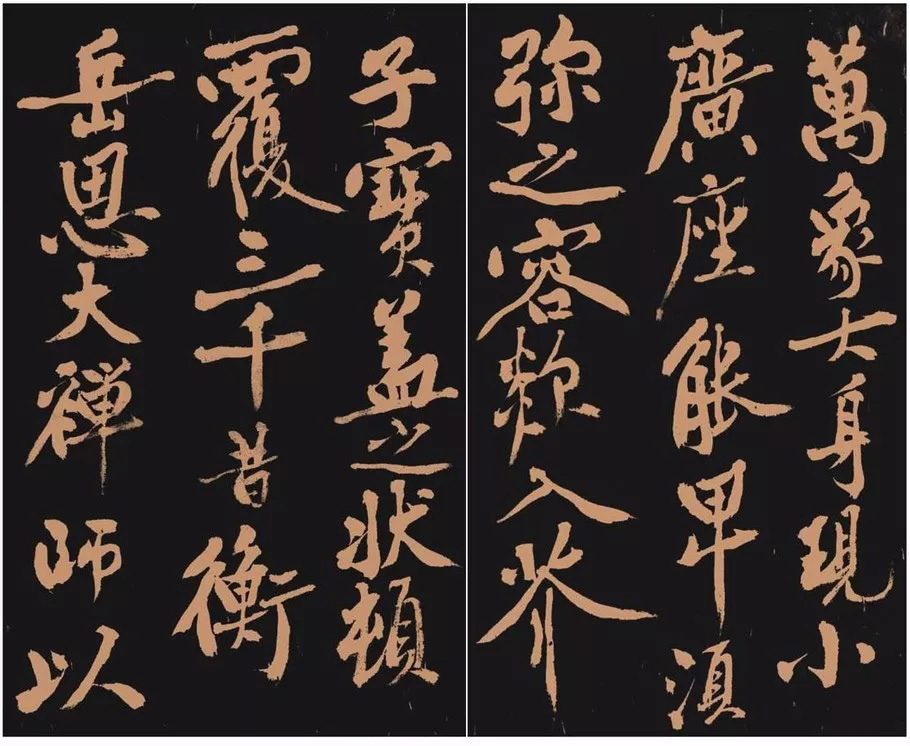 萬象大身現小
廣座能卑須
弥之容欻入芥
子寶盖之狀頓
覆三千昔衡
岳思大禪師以